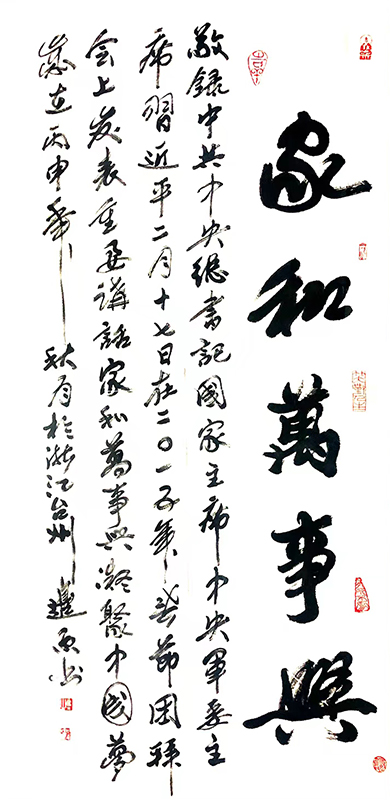 家和萬事興
敬錄中共中央總書記國家主席中央軍委主
席習近平二月十七日在二〇一五年春節團拜
会上发表重要講話家和萬事興凝聚中國夢
歲在丙申年秋月於浙江台州邊原书